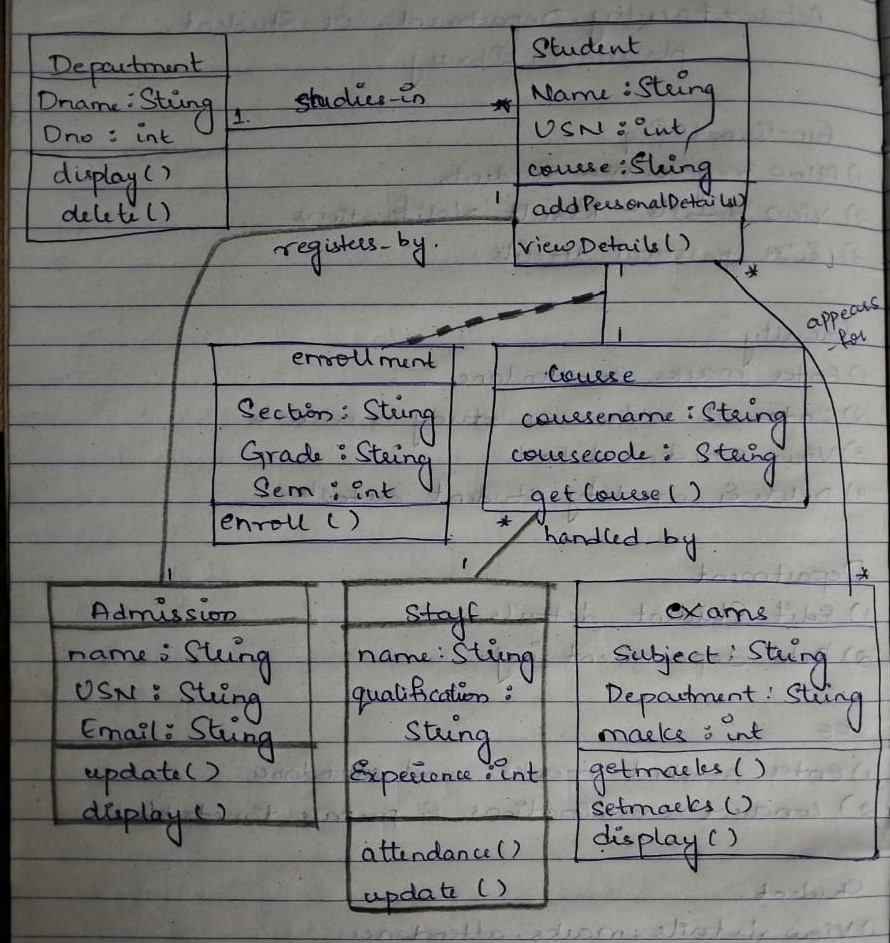 Department
Dname : String
Dno : int
display()
delete()
1. studies-in *
Student
Name : String
USN : int
course : String
addPersonalDetails()
viewDetails()
1
registers_by.
1
*
appears
for
1
enrollment
Section : String
Grade : String
Sem : int
enroll ()
Course
coursename : String
coursecode : String
getCourse()
*
handled_by
1
1
*
Admission
name : String
USN : String
Email : String
update()
display()
Staff
name : String
qualification :
String
Experience : int
attendance()
update ()
exams
Subject : String
Department : String
marks : int
getmarks ()
setmarks ()
display()